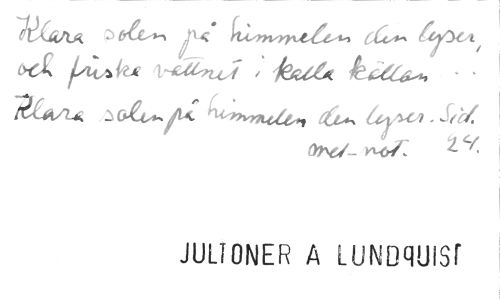 Klara solen på himmelen den lyser,
och friska vattnet i kalla källan . .
Klara solen på himmelen den lyser. Sid.
mel-not. 24.
JULTONER A LUNDQUIST